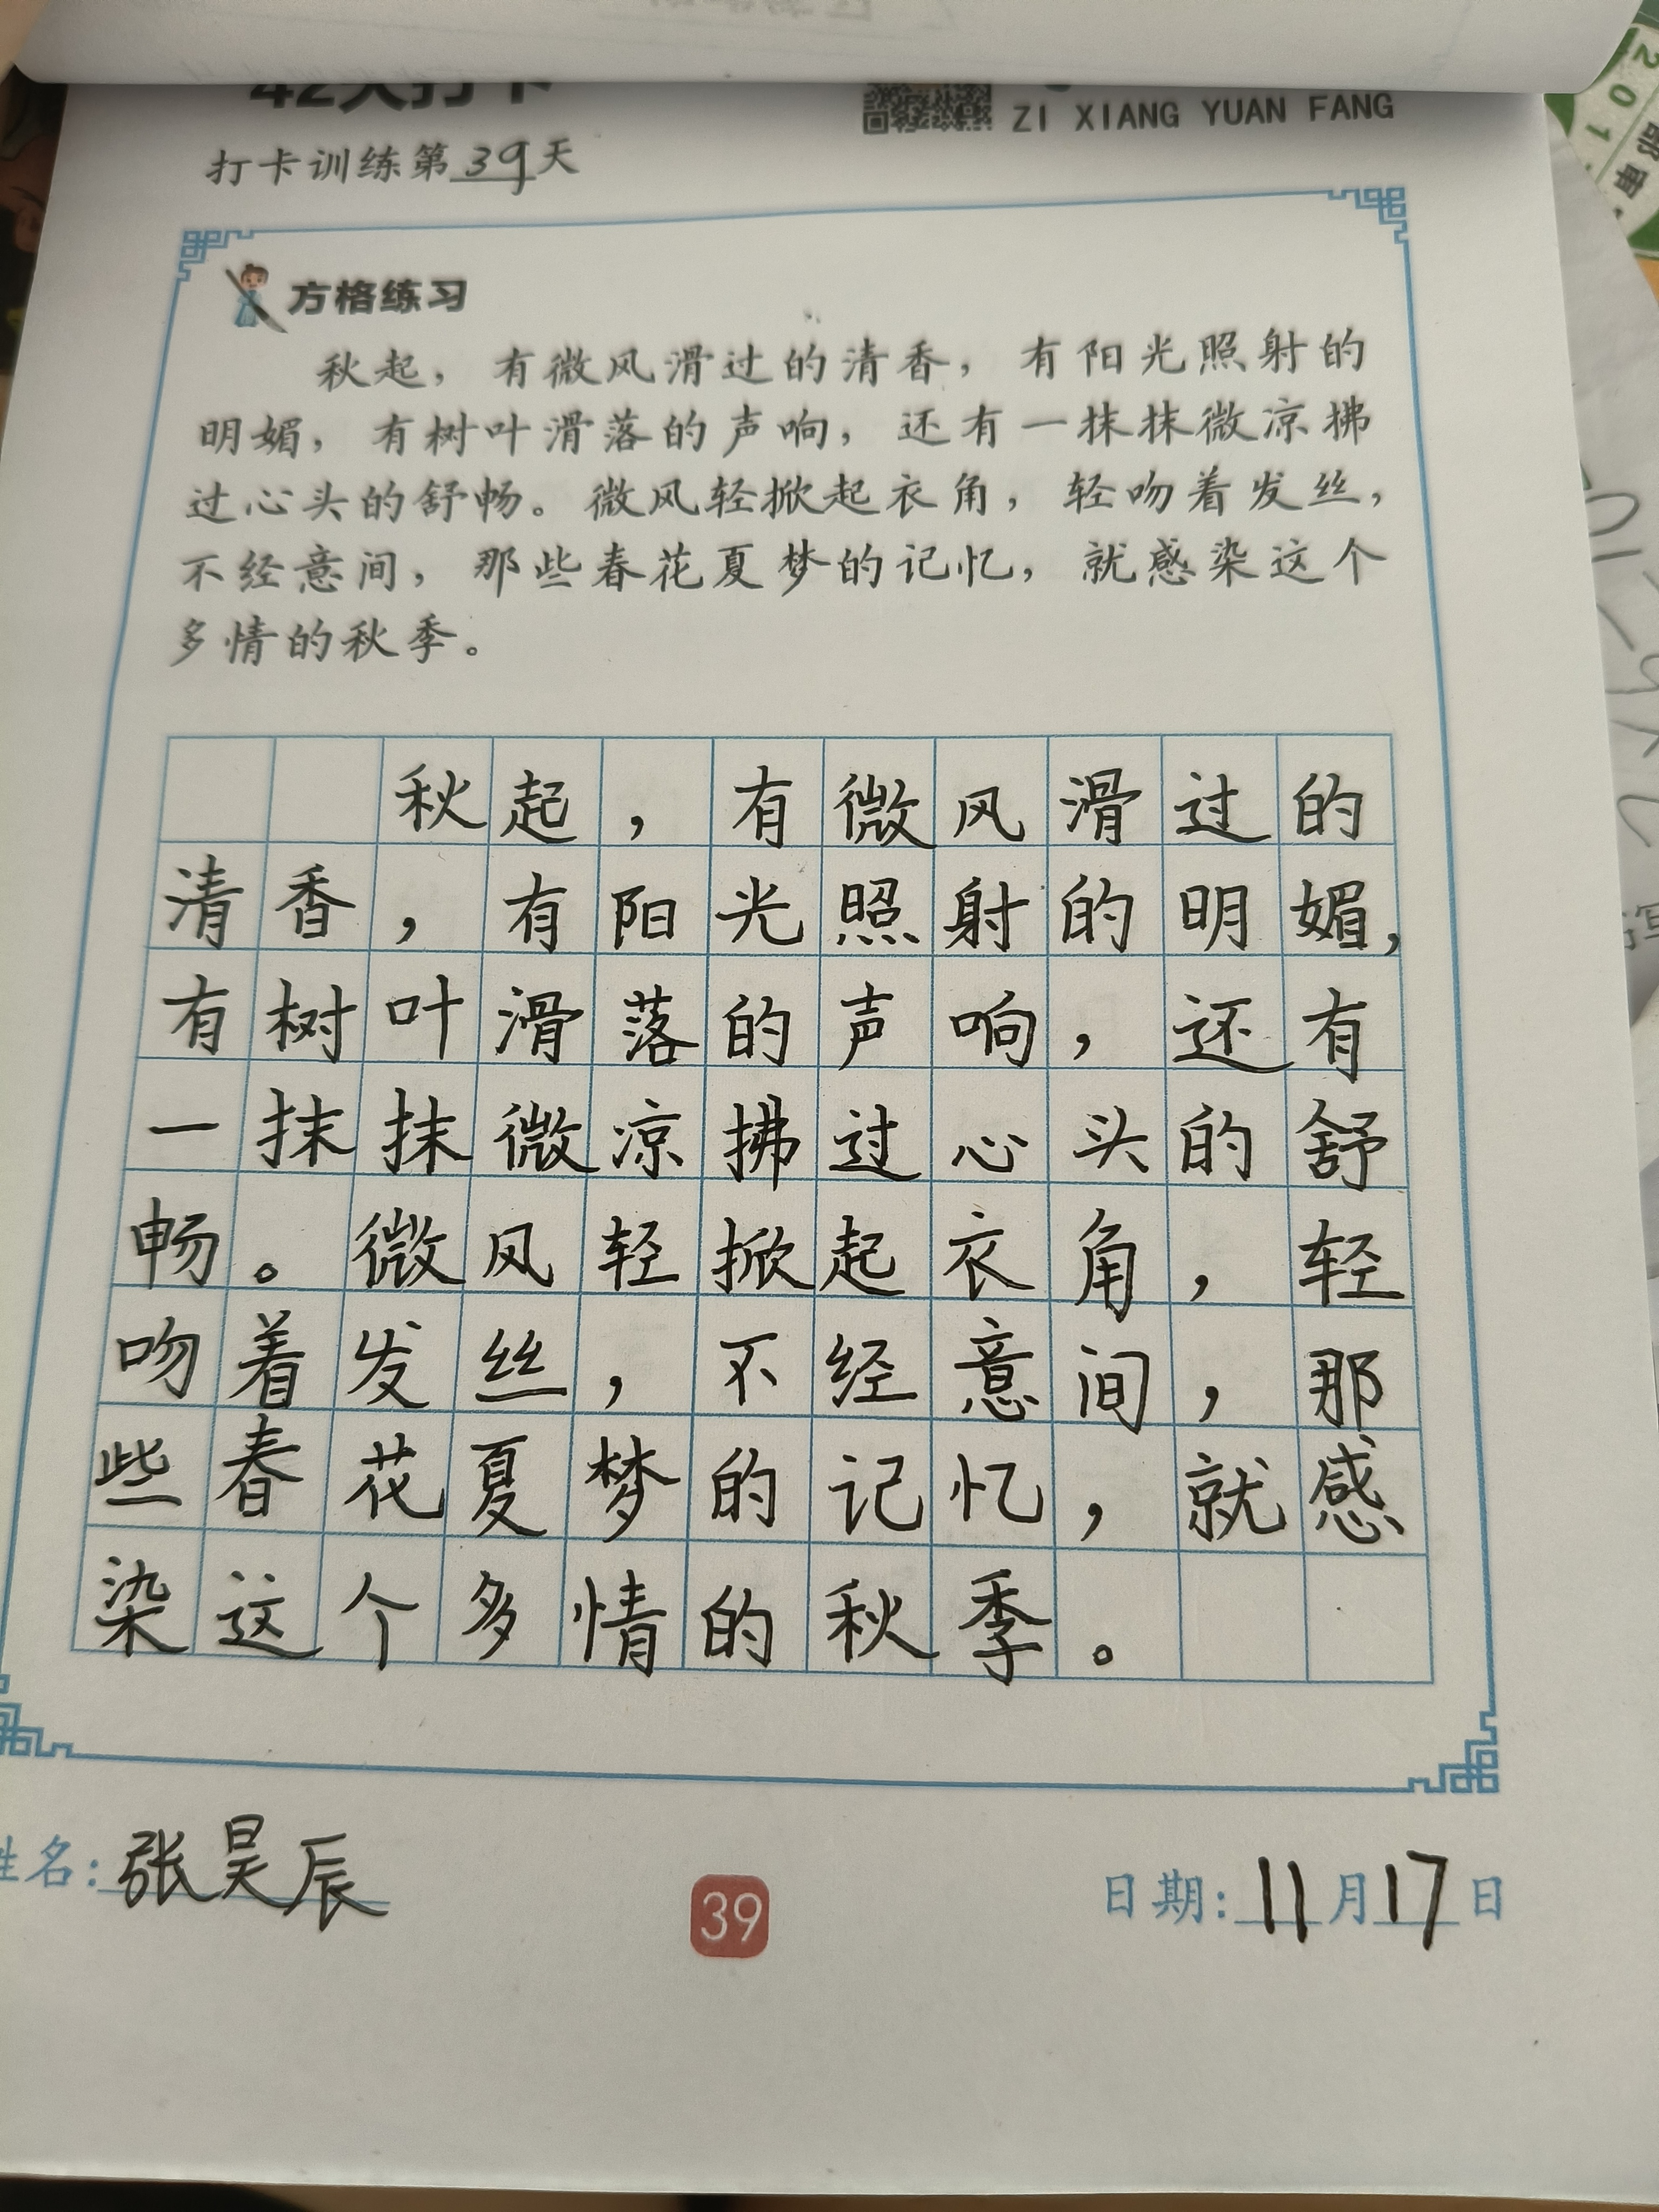 42天打卡
ZI XIANG YUAN FANG
打卡训练第39天
方格练习
秋起，有微风滑过的清香，有阳光照射的
明媚，有树叶滑落的声响，还有一抹抹微凉拂
过心头的舒畅。微风轻掀起衣角，轻吻着发丝，
不经意间，那些春花夏梦的记忆，就感染这个
多情的秋季。
秋起，有微风滑过的
清香，有阳光照射的明媚，
有树叶滑落的声响，还有
一抹抹微凉拂过心头的舒
畅。微风轻掀起衣角，轻
吻着发丝，不经意间，那
些春花夏梦的记忆，就感
染这个多情的秋季。
姓名：张昊辰
39
日期：11月17日